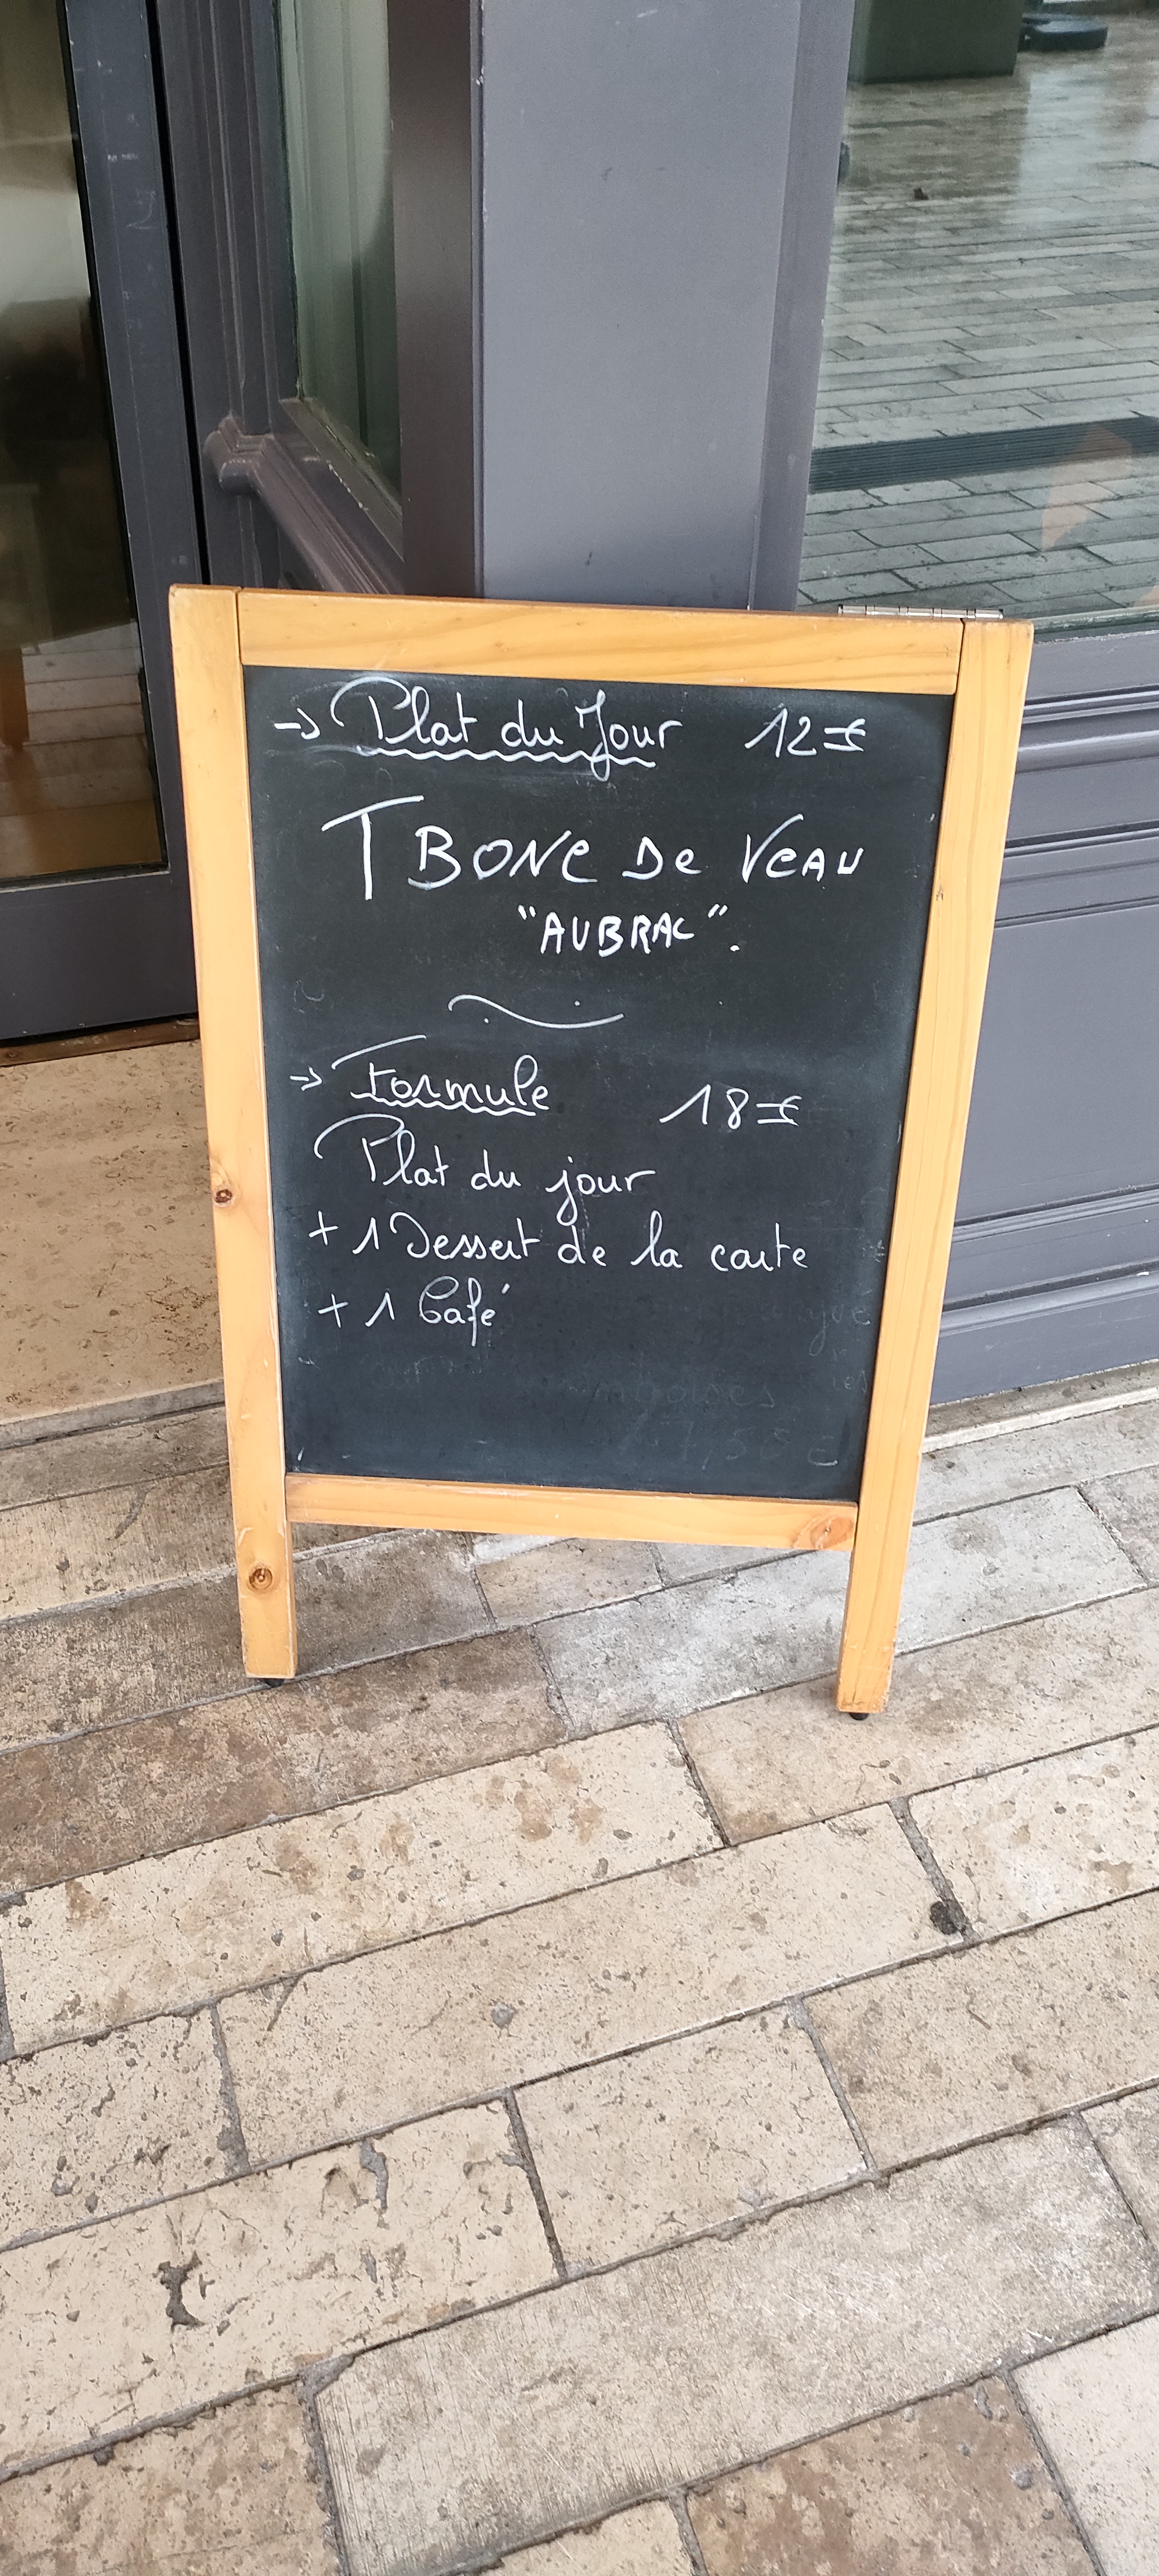 → Plat du Jour 12€
T BONE De VEAU
"AUBRAC".
→ Formule 18€
Plat du jour
+ 1 Dessert de la carte
+ 1 Café